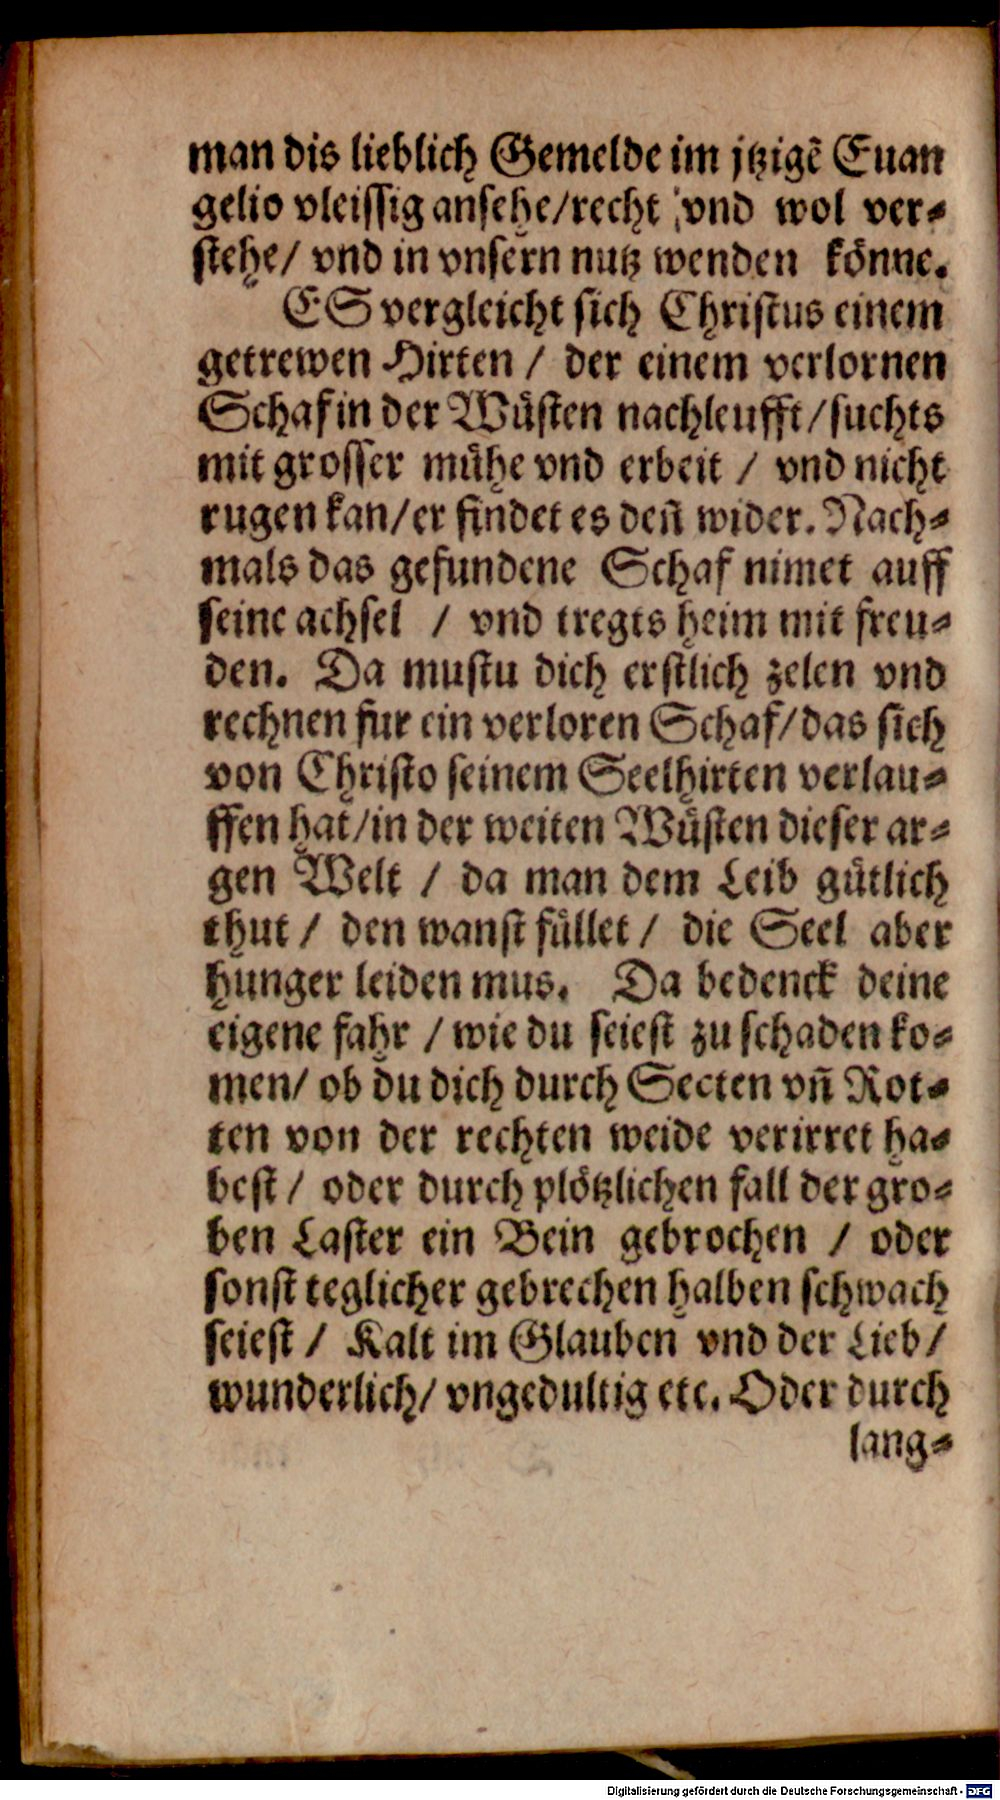 man dis lieblich Gemelde im jtzigẽ Euan
gelio vleissig ansehe/recht vnd wol ver-
stehe/ vnd in vnsern nutz wenden könne.
ES vergleicht sich Christus einem
getrewen Hirten / der einem verlornen
Schaf in der Wüsten nachleufft/suchts
mit grosser mühe vnd erbeit / vnd nicht
rugen kan/er findet es deñ wider. Nach-
mals das gefundene Schaf nimet auff
seine achsel / vnd tregts heim mit freu-
den. Da mustu dich erstlich zelen vnd
rechnen fur ein verloren Schaf/das sich
von Christo seinem Seelhirten verlau-
ffen hat/in der weiten Wüsten dieser ar-
gen Welt / da man dem Leib gütlich
thut / den wanst füllet / die Seel aber
hunger leiden mus. Da bedenck deine
eigene fahr / wie du seiest zu schaden ko-
men/ ob du dich durch Secten vñ Rot-
ten von der rechten weide verirret ha-
best / oder durch plötzlichen fall der gro-
ben Laster ein Bein gebrochen / oder
sonst teglicher gebrechen halben schwach
seiest / Kalt im Glauben vnd der Lieb/
wunderlich/ vngedultig etc. Oder durch
lang-
Digitalisierung gefördert durch die Deutsche Forschungsgemeinschaft - DFG